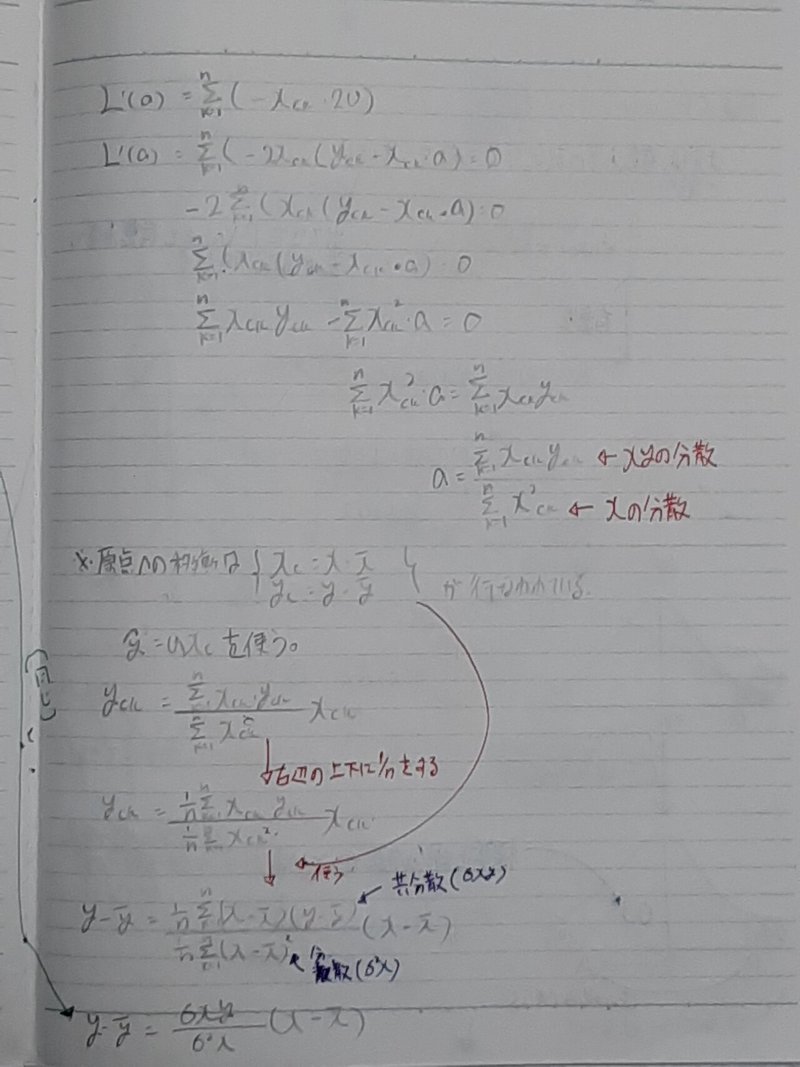 L'(a) = Σ_{k=1}^{n} (-x_{ck}・2U)
L'(a) = Σ_{k=1}^{n} (-2x_{ck}(y_{ck} - x_{ck}・a) = 0
-2 Σ_{k=1}^{n} (x_{ck}(y_{ck} - x_{ck}・a) = 0
Σ_{k=1}^{n} (x_{ck}(y_{ck} - x_{ck}・a) = 0
Σ_{k=1}^{n} x_{ck} y_{ck} - Σ_{k=1}^{n} x_{ck}^2・a = 0
Σ_{k=1}^{n} x_{ck}^2・a = Σ_{k=1}^{n} x_{ck} y_{ck}
a = \frac{Σ_{k=1}^{n} x_{ck} y_{ck}}{Σ_{k=1}^{n} x_{ck}^2}
← xyの分散
← xの分散
※・原点への移動は { x_c = x - x̄
y_c = y - ȳ } が行なわれている。
= a x_c を使う。
(同じ)
y_{ck} = \frac{Σ_{k=1}^{n} x_{ck}・y_{ck}}{Σ_{k=1}^{n} x_{ck}^2} x_{ck}
↓右辺の上下に1/nをする
y_{ck} = \frac{\frac{1}{n} Σ_{k=1}^{n} x_{ck} y_{ck}}{\frac{1}{n} Σ_{k=1}^{n} x_{ck}^2} x_{ck}
↓ 使う
共分散(σxy)
y - ȳ = \frac{\frac{1}{n} Σ_{k=1}^{n} (x - x̄)(y - ȳ)}{\frac{1}{n} Σ_{k=1}^{n} (x - x̄)^2} (x - x̄)
分散(σ²x)
y - ȳ = \frac{σxy}{σ²x} (x - x̄)